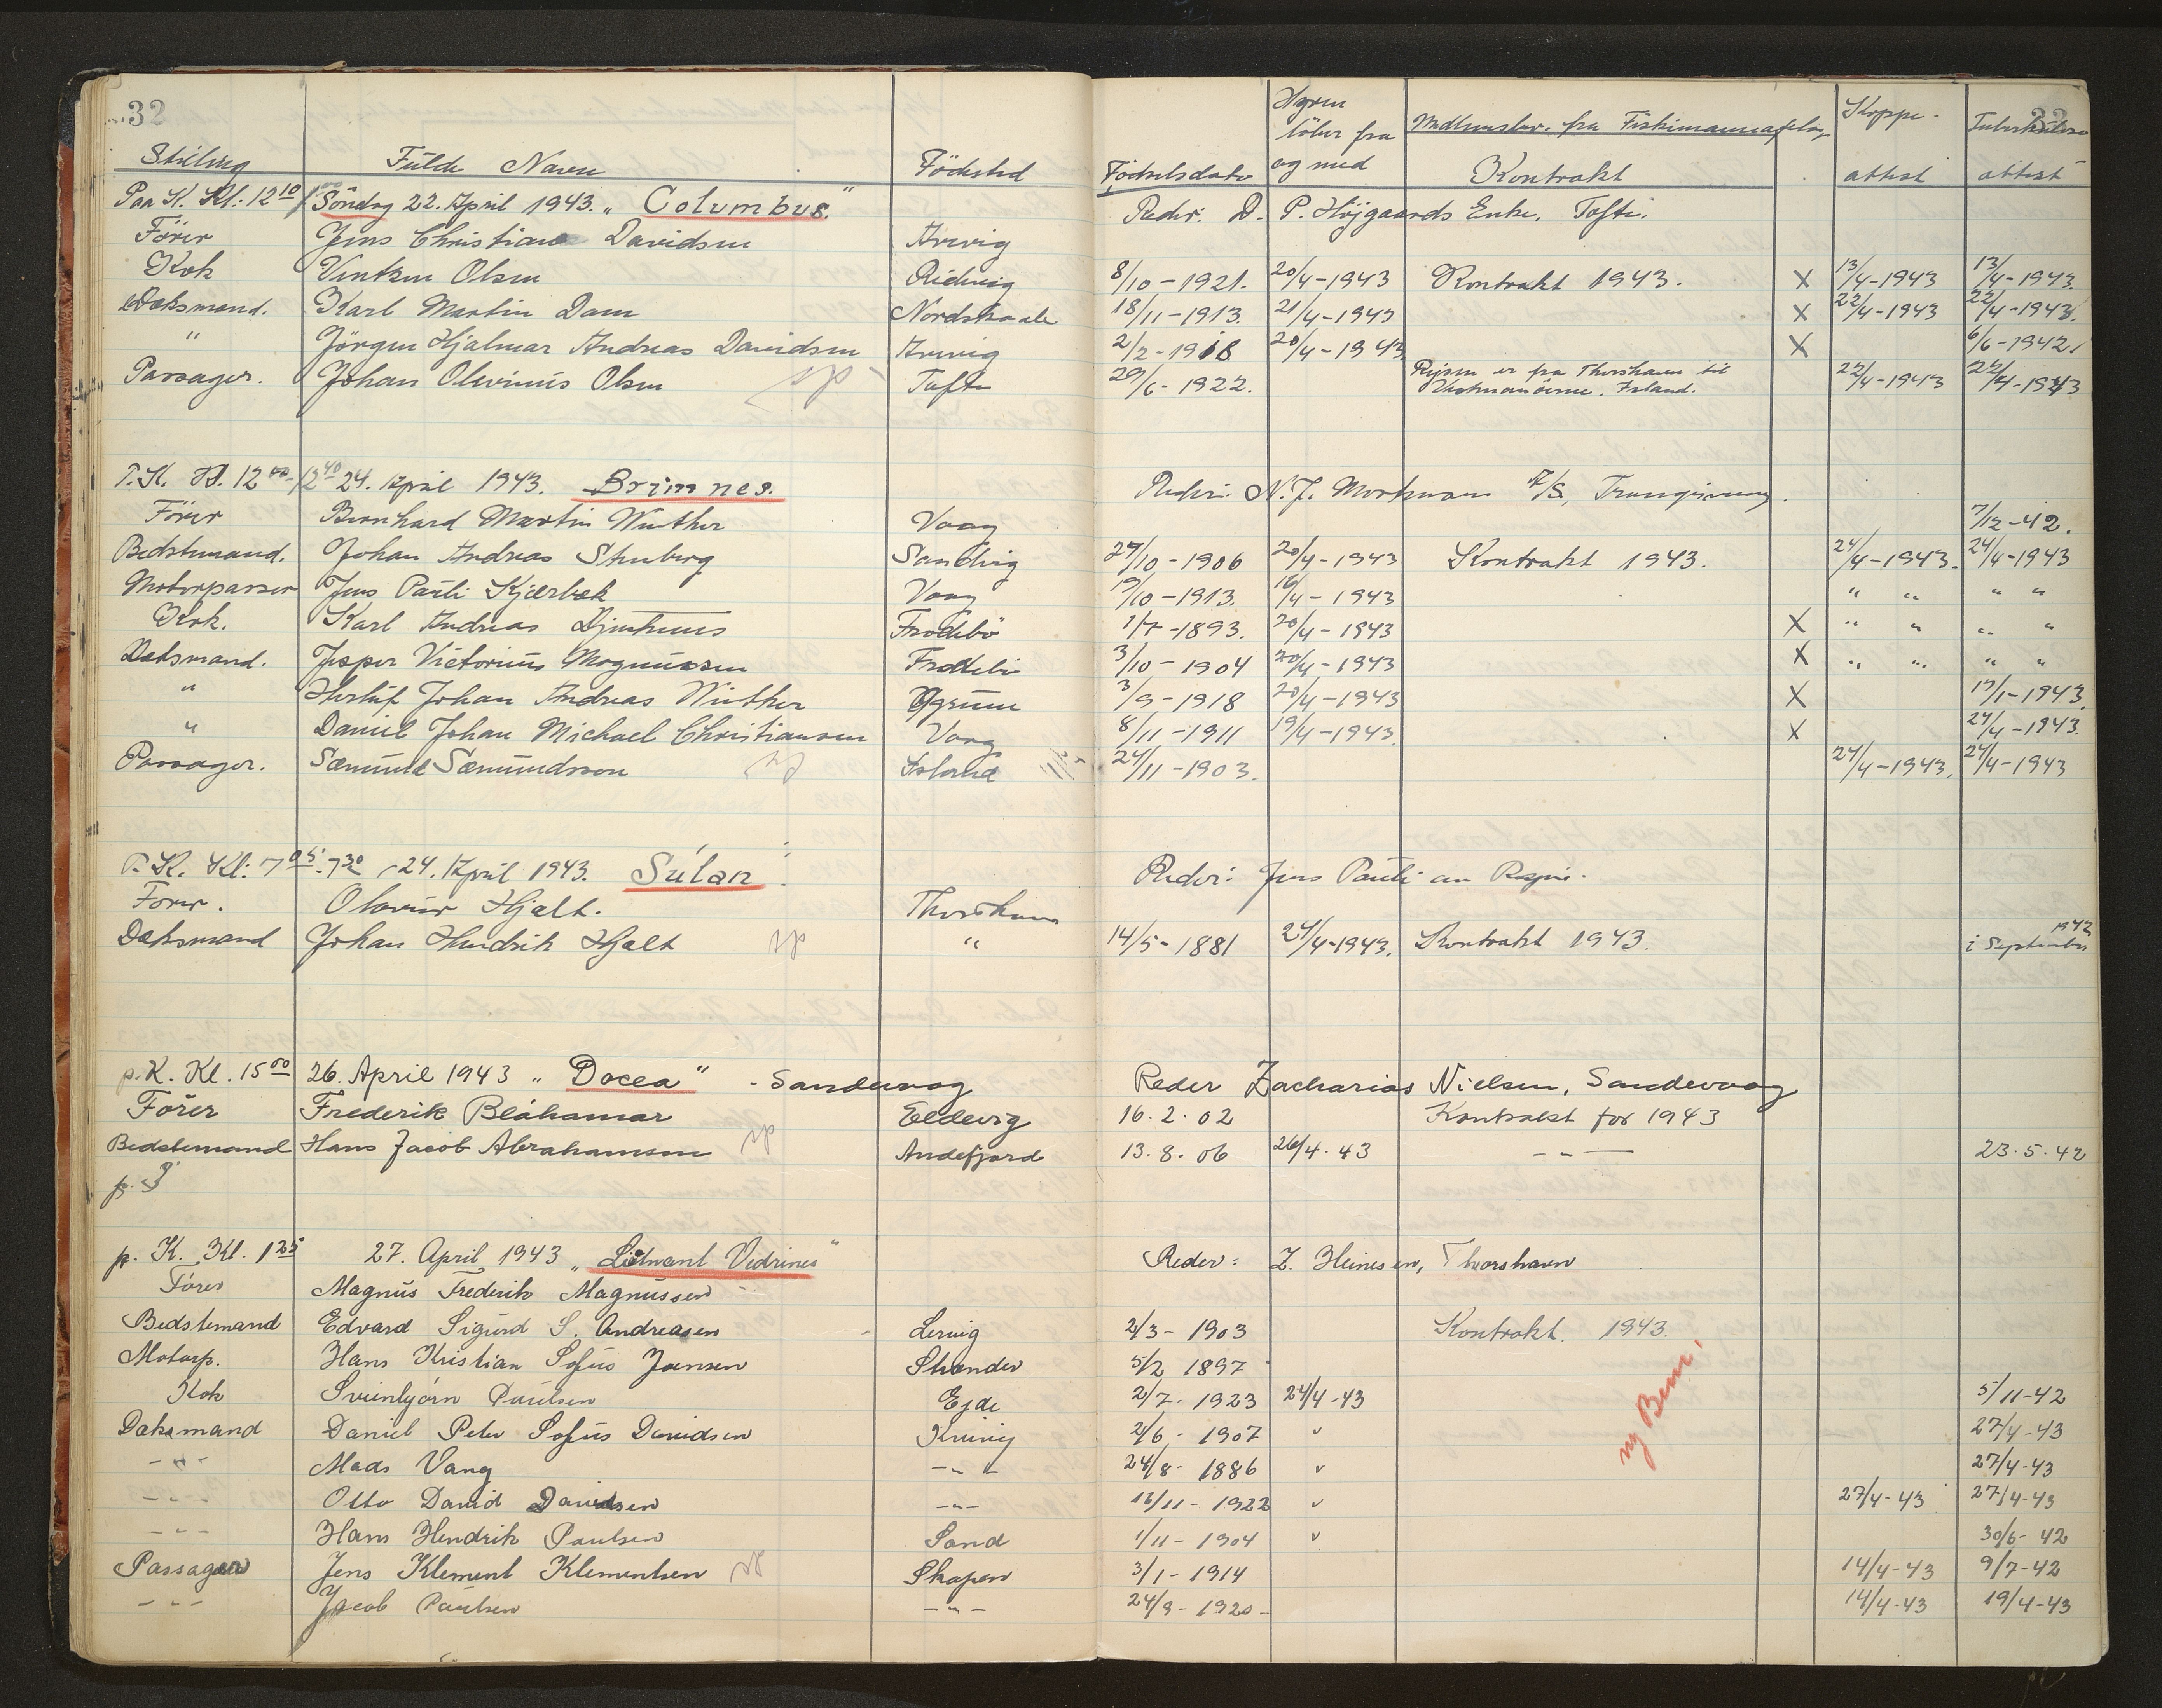 32 32
Stilling Fulde Navn Födested Födselsdato Hyren löber fra og med Medlemsbr. fra Fiskimannafelag Kontrakt Koppe- attest Tuberkulose attest
Paa K. Kl. 12 10 Söndag 22. April 1943. „Columbus." Reder: D. P. Höjgaards Enke, Tofte.
Förer Jens Christian Davidsen Arnvig
Kok Ventzen Olsen 8/10-1921. 20/4-1943 Kontrakt 1943. X 13/4-1943 13/4-1943.
Daksmand. Karl Martin Dam Nordskaale 18/11-1913. 21/4-1943 X 22/4-1943 22/4-1943.
" Jörgen Hjalmar Andreas Davidsen Arnvig 2/2-1918 20/4-1943 X 6/6-1942.
Passager. Johan Olevinus Olsen Tofte 29/6-1922. Rejsen er fra Thorshavn til Vestmanöerne, Island. 22/4-1943 22/4-1943
P. K. Kl. 12 40 24. April 1943. Brimnes. Reder: N. J. Mortensen A/S, Trangisvaag.
Förer Bernhard Martin Winther Vaag 7/12-42.
Bedstemand. Johan Andreas Stenberg Sandvig 27/10-1906 20/4-1943 Kontrakt 1943. 24/4-1943. 24/4-1943
Motorpasser Jens Pauli Kjærbæk Vaag 19/10-1913. 16/4-1943 " " " "
Kok. Karl Andreas Djurhuus Frodebö 1/7-1893. 20/4-1943 X " " " "
Daksmand. Jesper Victorius Magnussen Frodebö 3/10-1904 20/4-1943 X " " " "
" Herluf Johan Andreas Winther 3/9-1918 20/4-1943 X 19/1-1943.
" Daniel Johan Michael Christiansen Vaag 8/11-1911 19/4-1943. X 24/4-1943.
Passager. Sæmund Sæmundsson Island 24/11-1903. 24/4-1943. 24/4-1943
P. K. Kl. 7 05-7 30 24. April 1943. Súlan". Reder: Jens Pauli
Förer. Olavur Hjalt. Thorshavn
Daksmand Johan Hendrik Hjalt " 14/5-1881 24/4-1943. Kontrakt 1943. i September 1942
p. K. Kl. 15 00 26. April 1943 „Docea" - Sandevaag Reder Zacharias Nielsen, Sandevaag
Förer Frederik Bláhamar Eldevig 16.2.02 Kontrakt for 1943
Bedstemand Hans Jacob Abrahamsen Andefjord 13.8.06 26/4.43 - " - 23.5.42
p.
p. K. Kl. 1 25 27. April 1943 „Lieutnant Vedrines" Reder: Z. Heinesen, Thorshavn
Förer Magnus Frederik Magnussen
Bedstemand Edvard Sigurd S. Andreasen Lervig 2/3-1903 Kontrakt. 1943.
Motorp. Hans Kristian Sofus Joensen Strender 5/2 1897
Kok Sveinbjörn Paulsen Ejde 2/7-1923 24/4-43 5/11-42
Daksmand Daniel Peter Sofus Davidsen Kvivig 2/6-1907 " 27/4-43
- " - Mads Vang - " - 24/8-1886 " 27/4-43
- " - Otto David Davidsen - " - 16/11-1922 " 27/4-43 27/4-43
- " - Hans Hendrik Paulsen Sand 1/11-1904 " 30/6-42
Passager Jens Klement Klementsen Skopen 3/1-1914 14/4-43 9/7-42
- " - Jacob Paulsen - " - 24/9-1920- 14/4-43 19/4-43
ny Bem.